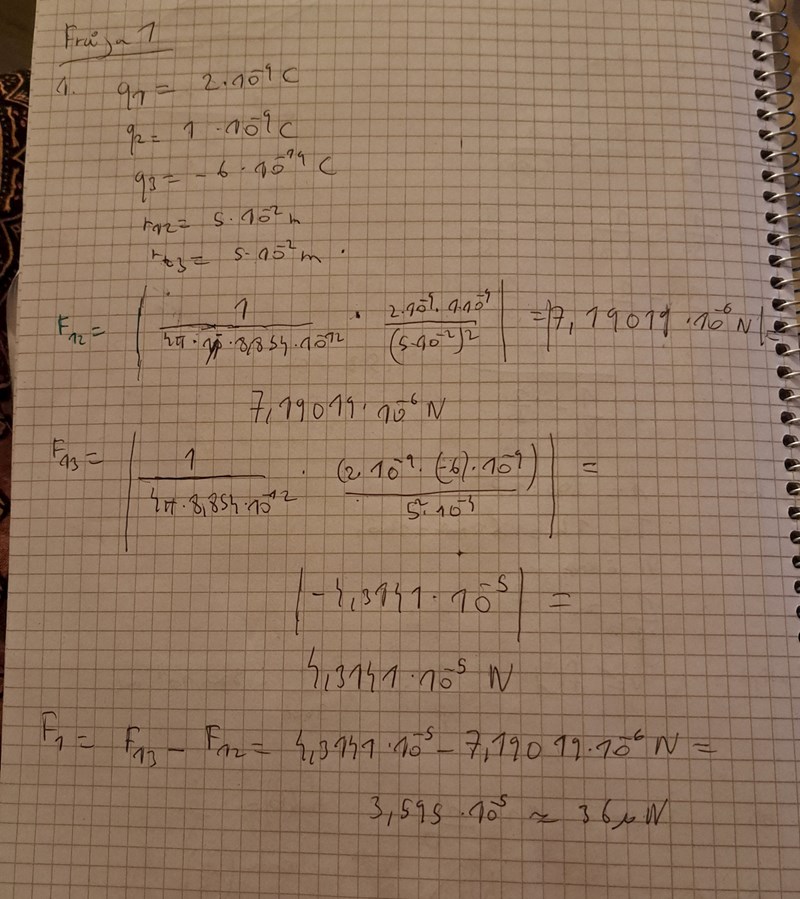 Fråga 1
1. q₁ = 2·10⁻⁹ C
q₂ = 1 · 10⁻⁹ C
q₃ = - 6 · 10⁻¹⁹ C
r₁₂ = 5 · 10⁻² m
r₁₃ = 5 · 10⁻² m
F₁₂ = | 1 / (4π · 8,854 · 10⁻¹²) · (2·10⁻⁹ · 1·10⁻⁹) / (5·10⁻²)² | = |7,19019 · 10⁻⁶ N| =
7,19019 · 10⁻⁶ N
F₁₃ = | 1 / (4π · 8,854 · 10⁻¹²) · (2·10⁻⁹ · (-6) · 10⁻⁹) / (5² · 10⁻⁴) | =
|-4,3141 · 10⁻⁵| =
4,3141 · 10⁻⁵ N
F₁ = F₁₃ - F₁₂ = 4,3141 · 10⁻⁵ - 7,19019 · 10⁻⁶ N =
3,595 · 10⁻⁵ ≈ 36 μN